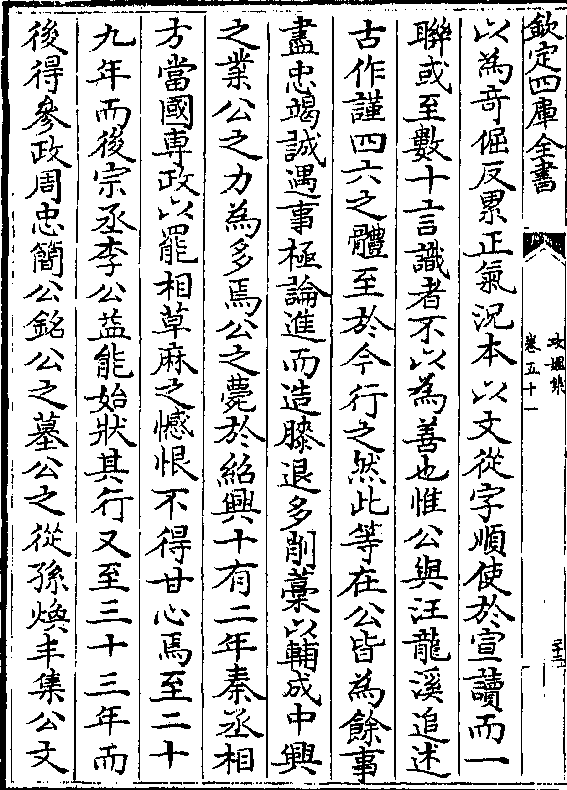 欽定四庫全書
攻媿集
卷五十一
以為奇倔反累正氣況本以文從字順使於宣讀而一
聯或至數十言識者不以為善也惟公與汪龍溪追述
古作謹四六之體至於今行之然此等在公皆為餘事
盡忠竭誠遇事極論進而造膝退多削藁以輔成中興
之業公之力為多焉公之薨於紹興十有二年秦丞相
方當國専政以罷相草麻之憾恨不得甘心焉至二十
九年而後宗丞李公益能始狀其行又至三十三年而
後得參政周忠簡公銘公之墓公之從孫煥丰集公文